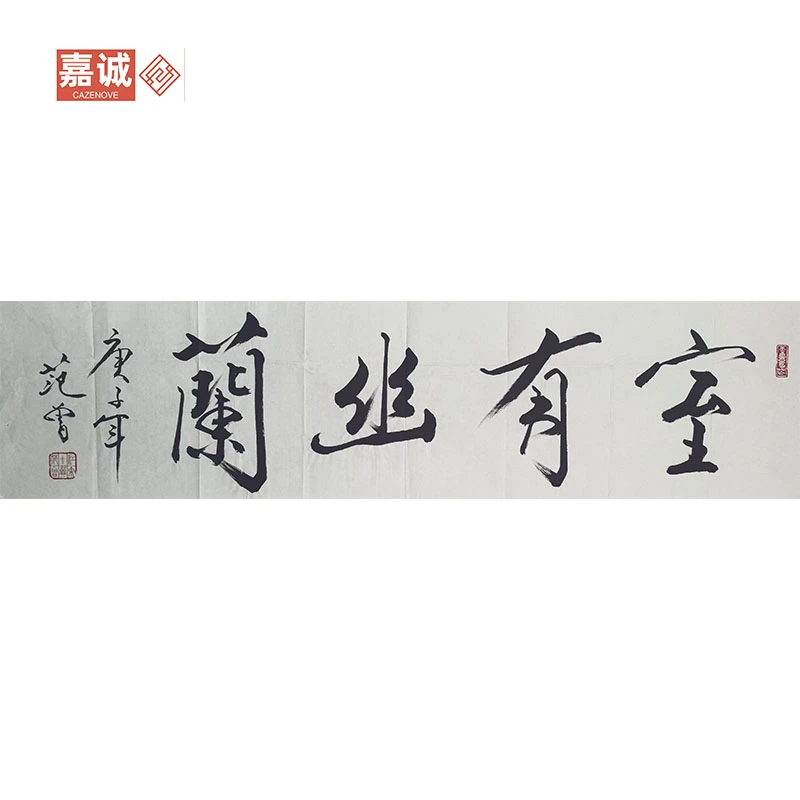 嘉诚
CAZENOVE
室有幽蘭
庚子年
范曾